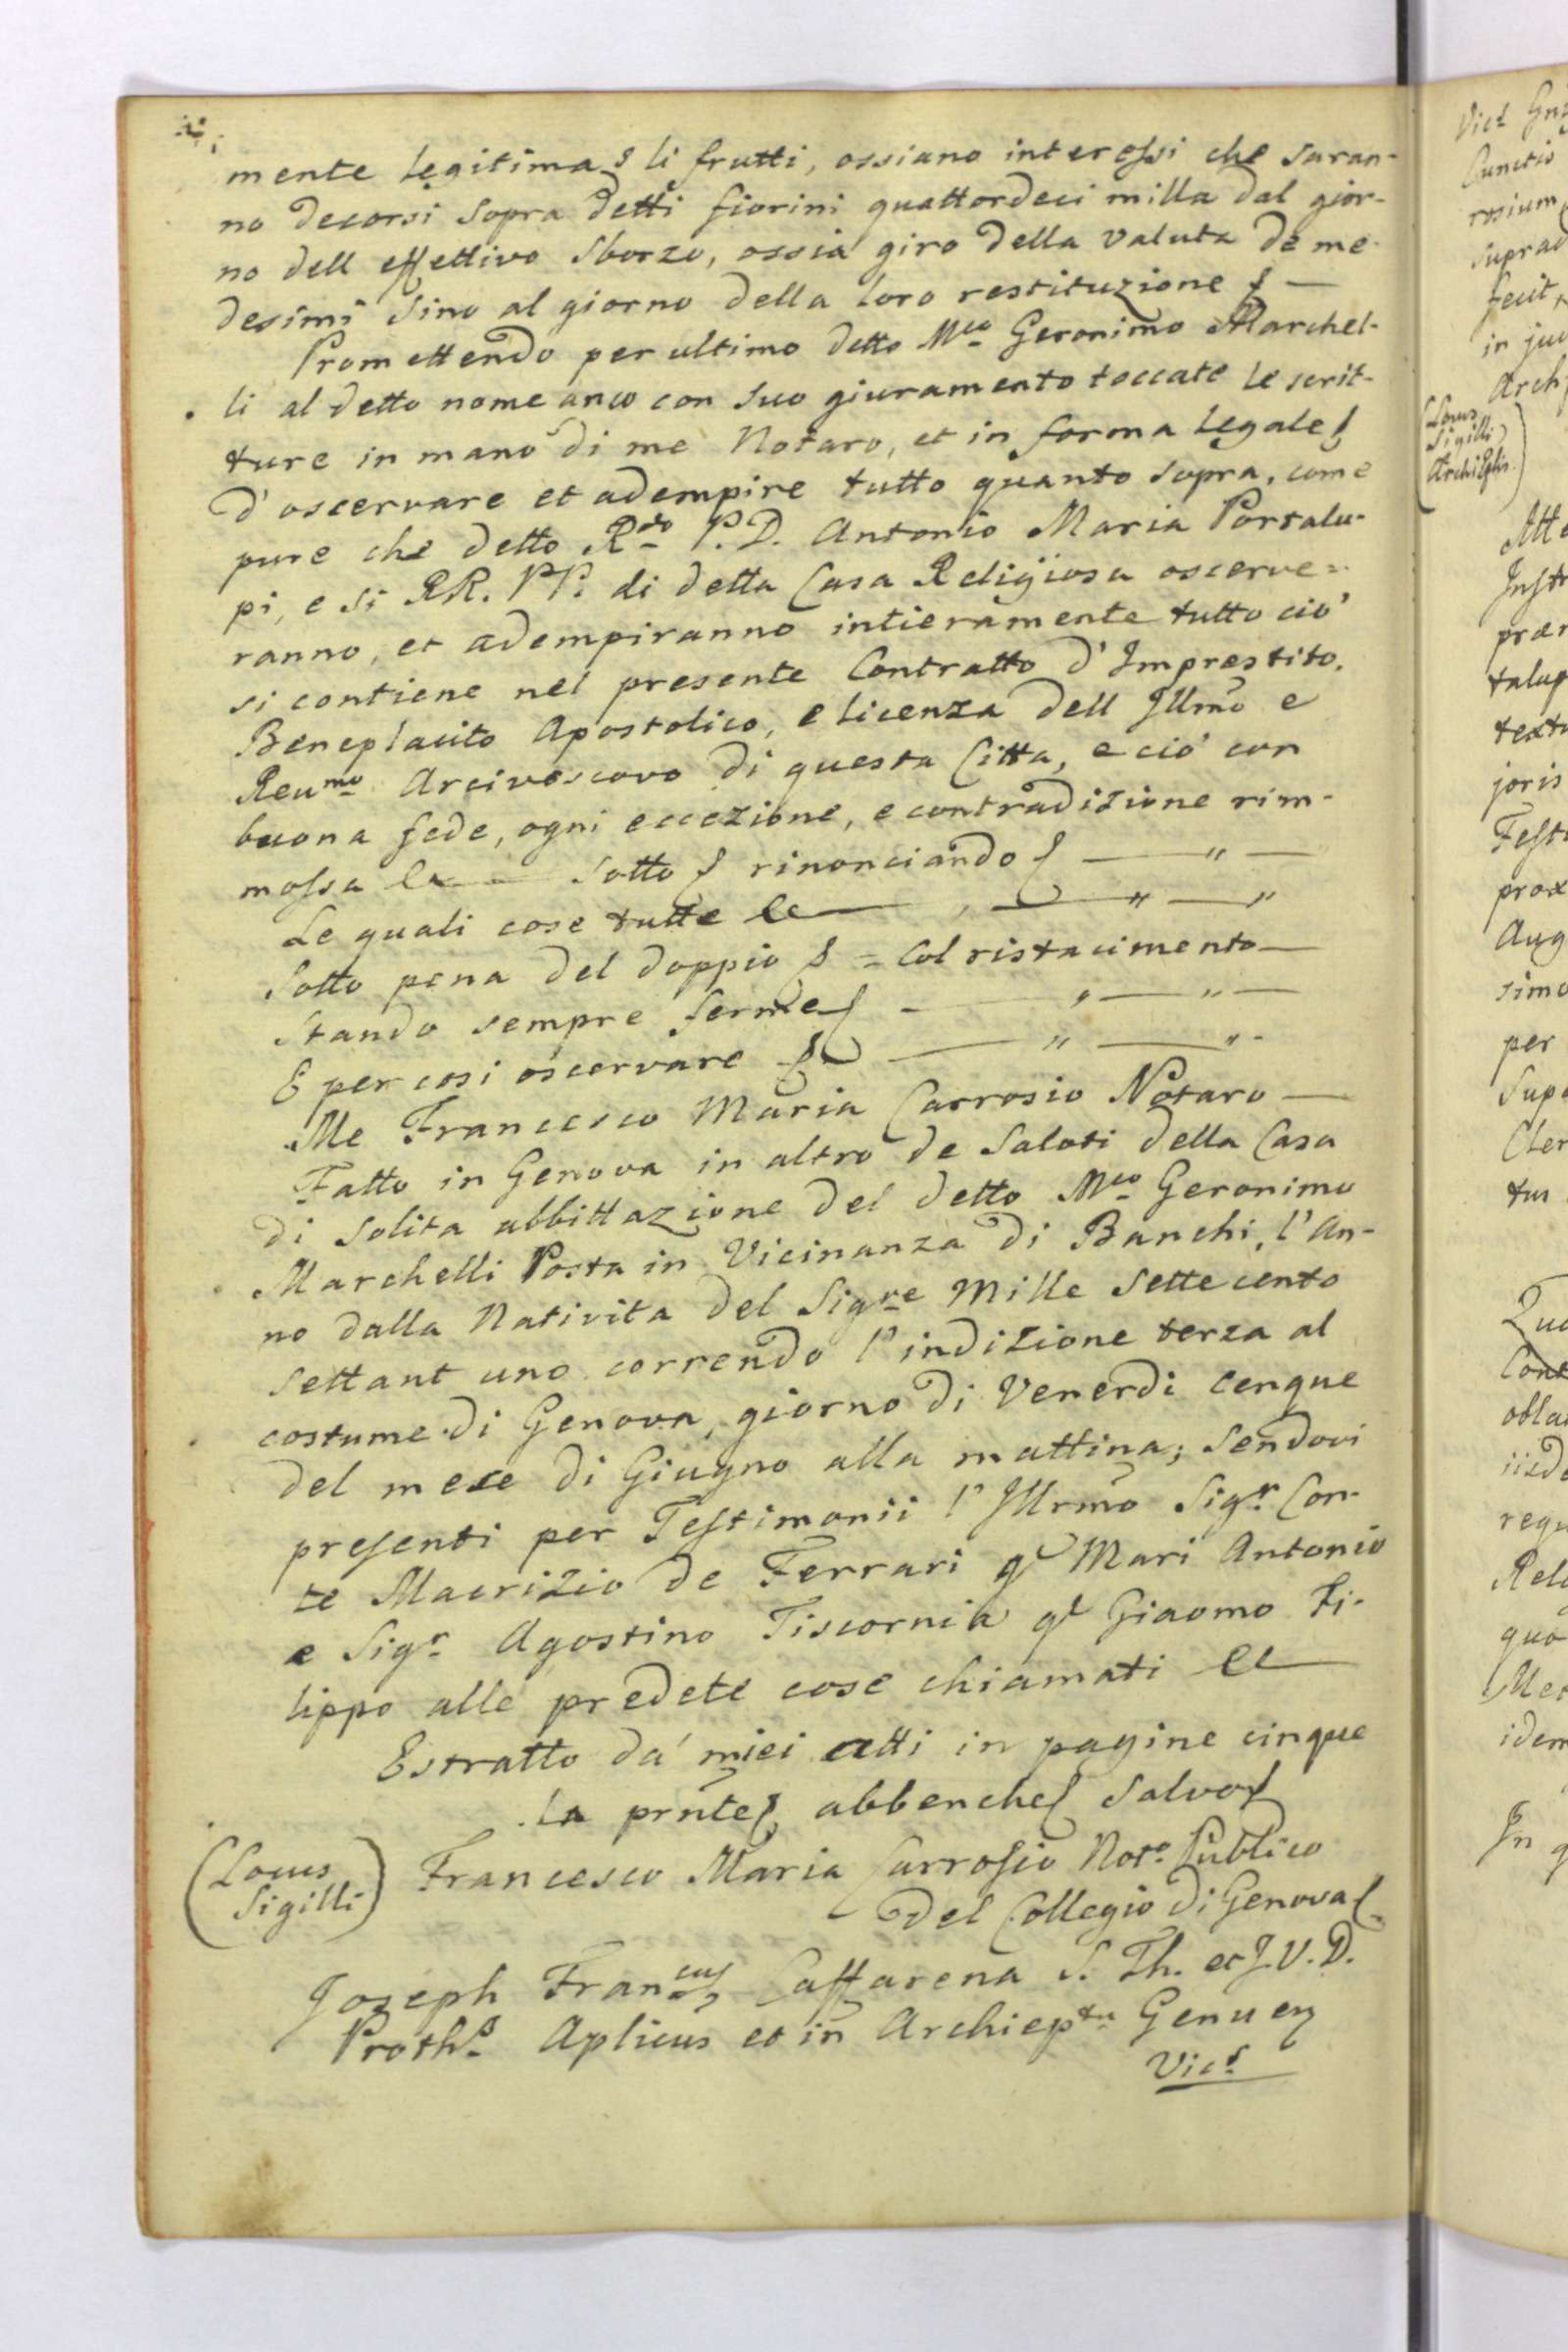 mente legitima li frutti, ossiano interessi che saran-
no decorsi sopra detti fiorini quattordeci milla dal gior-
no dell effettivo sborzo, ossia giro della valuta de me-
desimi sino al giorno della loro restituzione
Promettendo per ultimo detto Mco Geronimo Marchel-
li al detto nome anco con suo giuramento toccate le scrit-
ture in mano di me Notaro, et in forma legale
d'oscervare et adempire tutto quanto sopra, come
pure che detto Rdo P. D. Antonio Maria Portalu-
pi, e si RR. PP. di detta Casa Religiosa oscerve=
ranno, et adempiranno intieramente tutto ciò
si contiene nel presente Contratto d'Imprestito,
Beneplacito Apostolico, e licenza dell Illmo e
Reumo Arcivescovo di questa Citta, e ciò con
buona fede, ogni eccezione, e contradizione rim-
mossa &c — sotto rinonciando — " —
Le quali cose tutte &c — " — "
Sotto pena del doppio = Col ristacimento —
Stando sempre ferme — " — " —
E per cosi oscervare — " — " -
Me Francesco Maria Carrosio Notaro —
Fatto in Genova in altro de Saloti della Casa
di solita abbittazione del detto Mco Geronimo
Marchelli Posta in Vicinanza di Banchi, l'An-
no dalla Nativita del Sigre Mille Settecento
settant uno correndo l'indizione terza al
costume di Genova, giorno di Venerdi cenque
del mese di Giugno alla mattina; Sendovi
presenti per Testimonii l'Illrmo Sigr Con-
te Maurizio de Ferrari q Mari Antonio
e Sigr Agostino Tiscornia q Giaomo Fi-
lippo alle predete cose chiamati &c —
Estratto da' miei atti in pagine cinque
la prnte abbenche salvo
(Locus Sigilli) Francesco Maria Carrosio Noto Publico
del Collegio di Genova
Joseph Francus Caffarena S. Th. et J. V. D.
Proths Aplicus et in Archieptu Genuen
Vics
Vics
Cunctis
rosium
suprad
fecit,
in jud
Arch
(Locus
Sigilli
ArchiEplis.)
Atte
Instr
præs
talup
textu
joris
Festi
prox
Aug
simo
per
Supe
Cler
tus
oblat
iisde
requ
Relig
quo
idem
In q